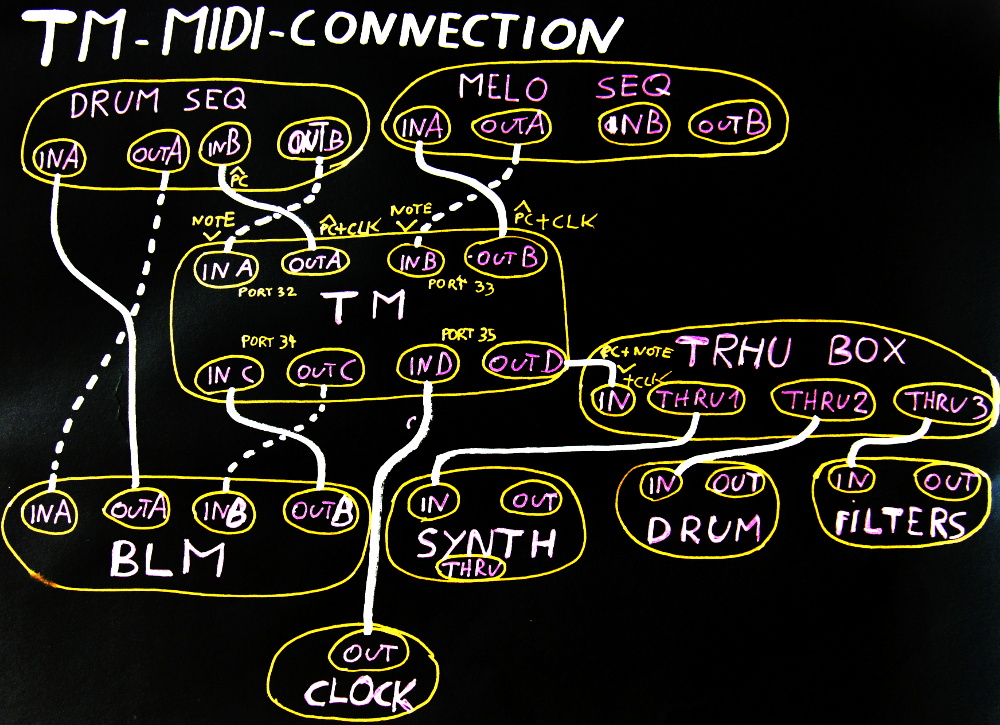 TM-MIDI-CONNECTION
DRUM SEQ
INA OUTA INB OUTB
MELO SEQ
INA OUTA INB OUTB
PC
NOTE
PC+CLK
NOTE
PC+CLK
IN A OUTA INB OUTB
PORT 32
PORT 33
TM
PORT 34
PORT 35
IN C OUTC IND OUTD
PC+NOTE
+CLK
TRHU BOX
IN THRU1 THRU2 THRU3
INA OUTA INB OUTB
BLM
IN OUT
SYNTH
THRU
IN OUT
DRUM
IN OUT
FILTERS
OUT
CLOCK